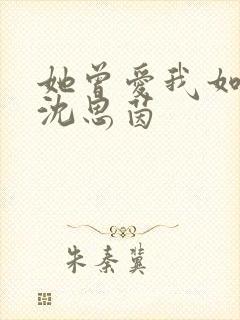 她曾爱我如
沈思茵
朱秦冀